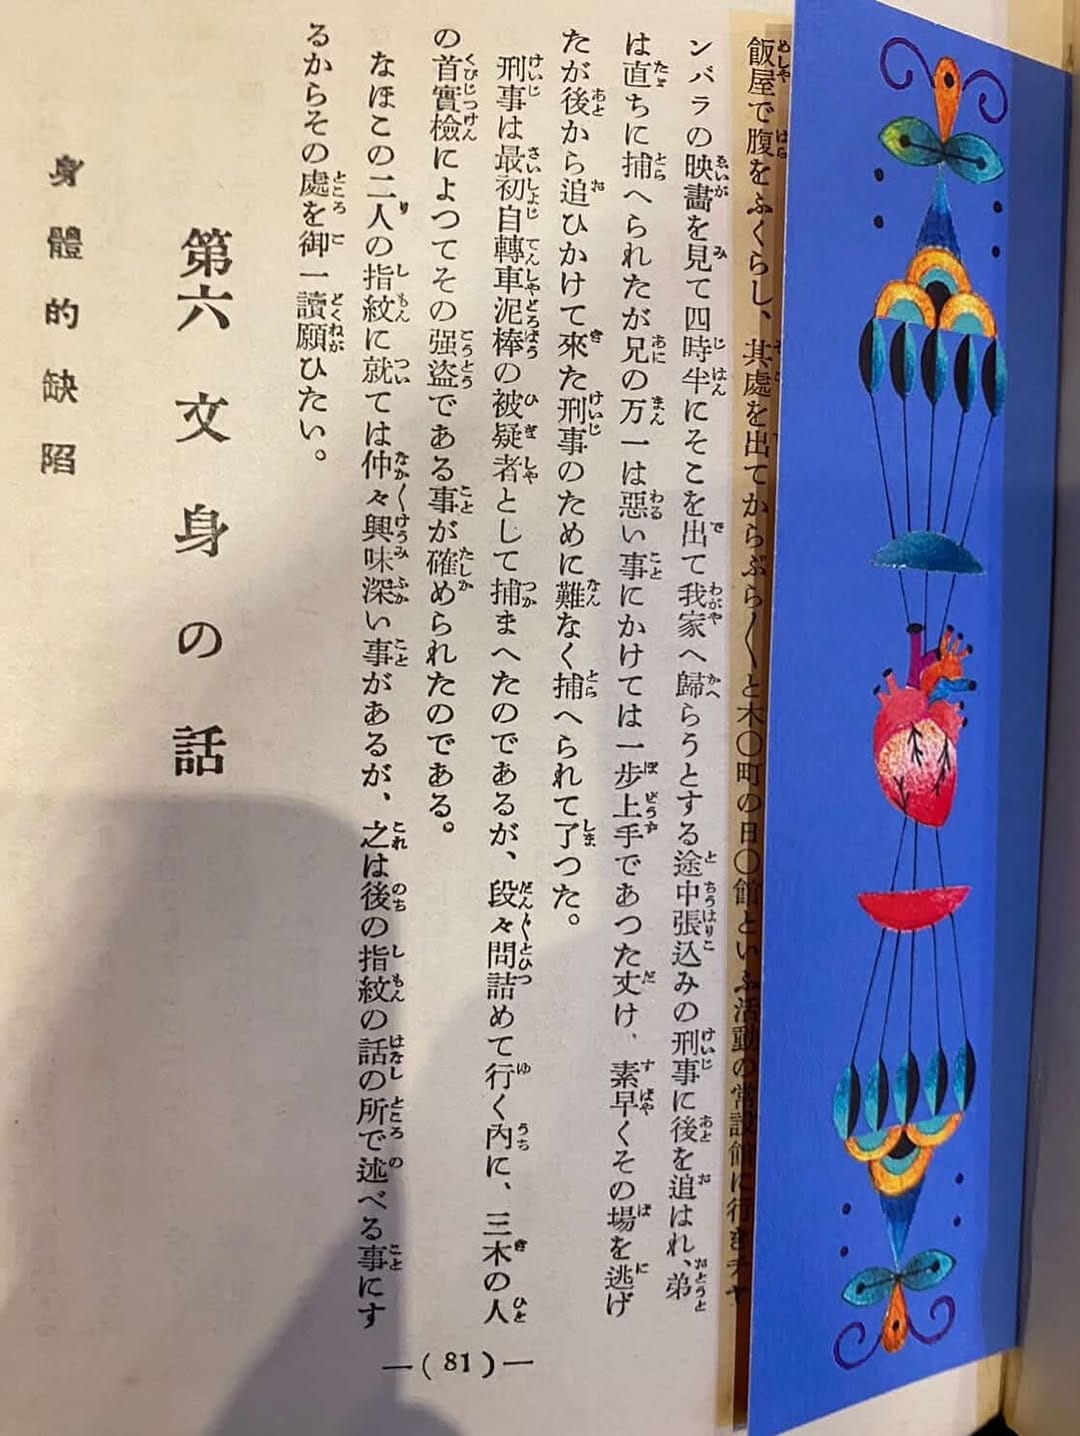 飯屋で腹をふくらし、其處を出てからぶら〱と木〇町の日〇館といふ活動の常設館に行きチヤ
ンバラの映畫を見て四時半にそこを出て我家へ歸らうとする途中張込みの刑事に後を追はれ、弟
は直ちに捕へられたが兄の万一は惡い事にかけては一歩上手であつた丈け、素早くその場を逃げ
たが後から追ひかけて來た刑事のために難なく捕へられて了つた。
刑事は最初自轉車泥棒の被疑者として捕まへたのであるが、段々問詰めて行く內に、三木の人
の首實檢によつてその强盜である事が確められたのである。
なほこの二人の指紋に就ては仲々興味深い事があるが、之は後の指紋の話の所で述べる事にす
るからその處を御一讀願ひたい。
第六 文身の話
身體的缺陷
―( 81 )―